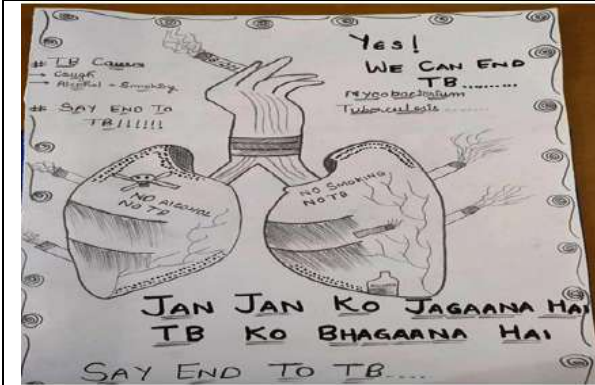 # TB Causes
→ Cough
→ Alcohol - Smoking
# SAY END TO
TB!!!!!!
Yes!
WE CAN END
TB.........
Mycobacterium
Tubaculosis........
NO ALCOHOL
NO TB
NO SMOKING
NO TB
JAN JAN KO JAGAANA HAI
TB KO BHAGAANA HAI
SAY END TO TB....